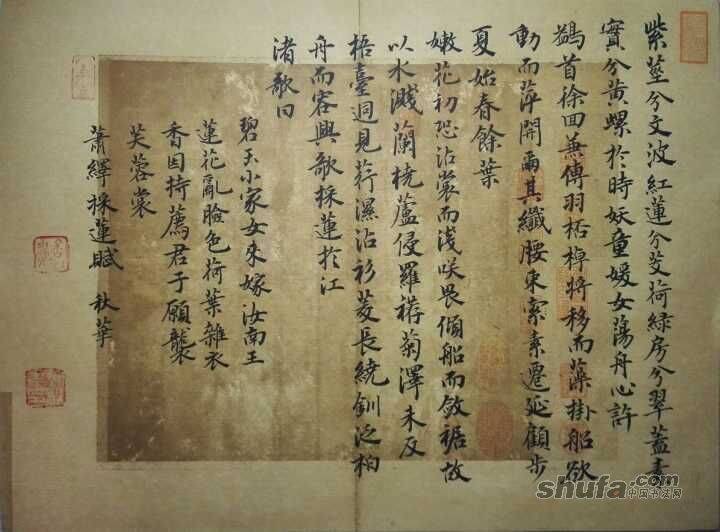 紫莖兮文波紅蓮兮芰荷綠房兮翠蓋素
實兮黃螺於時妖童媛女蕩舟心許
鷁首徐回兼傳羽杯棹將移而藻掛船欲
動而萍開爾其纖腰束素遷延顧步
夏始春餘葉
嫩花初恐沾裳而淺笑畏傾船而斂裾故
以水濺蘭橈蘆侵羅襟菊澤未反
梧臺迥見荇濕沾衫菱長繞釧泛柏
舟而容與歌採蓮於江
渚歌曰
碧玉小家女來嫁汝南王
蓮花亂臉色荷葉雜衣
香因持薦君子願襲
芙蓉裳
蕭繹採蓮賦 秋華
shufa.com
中国书法网